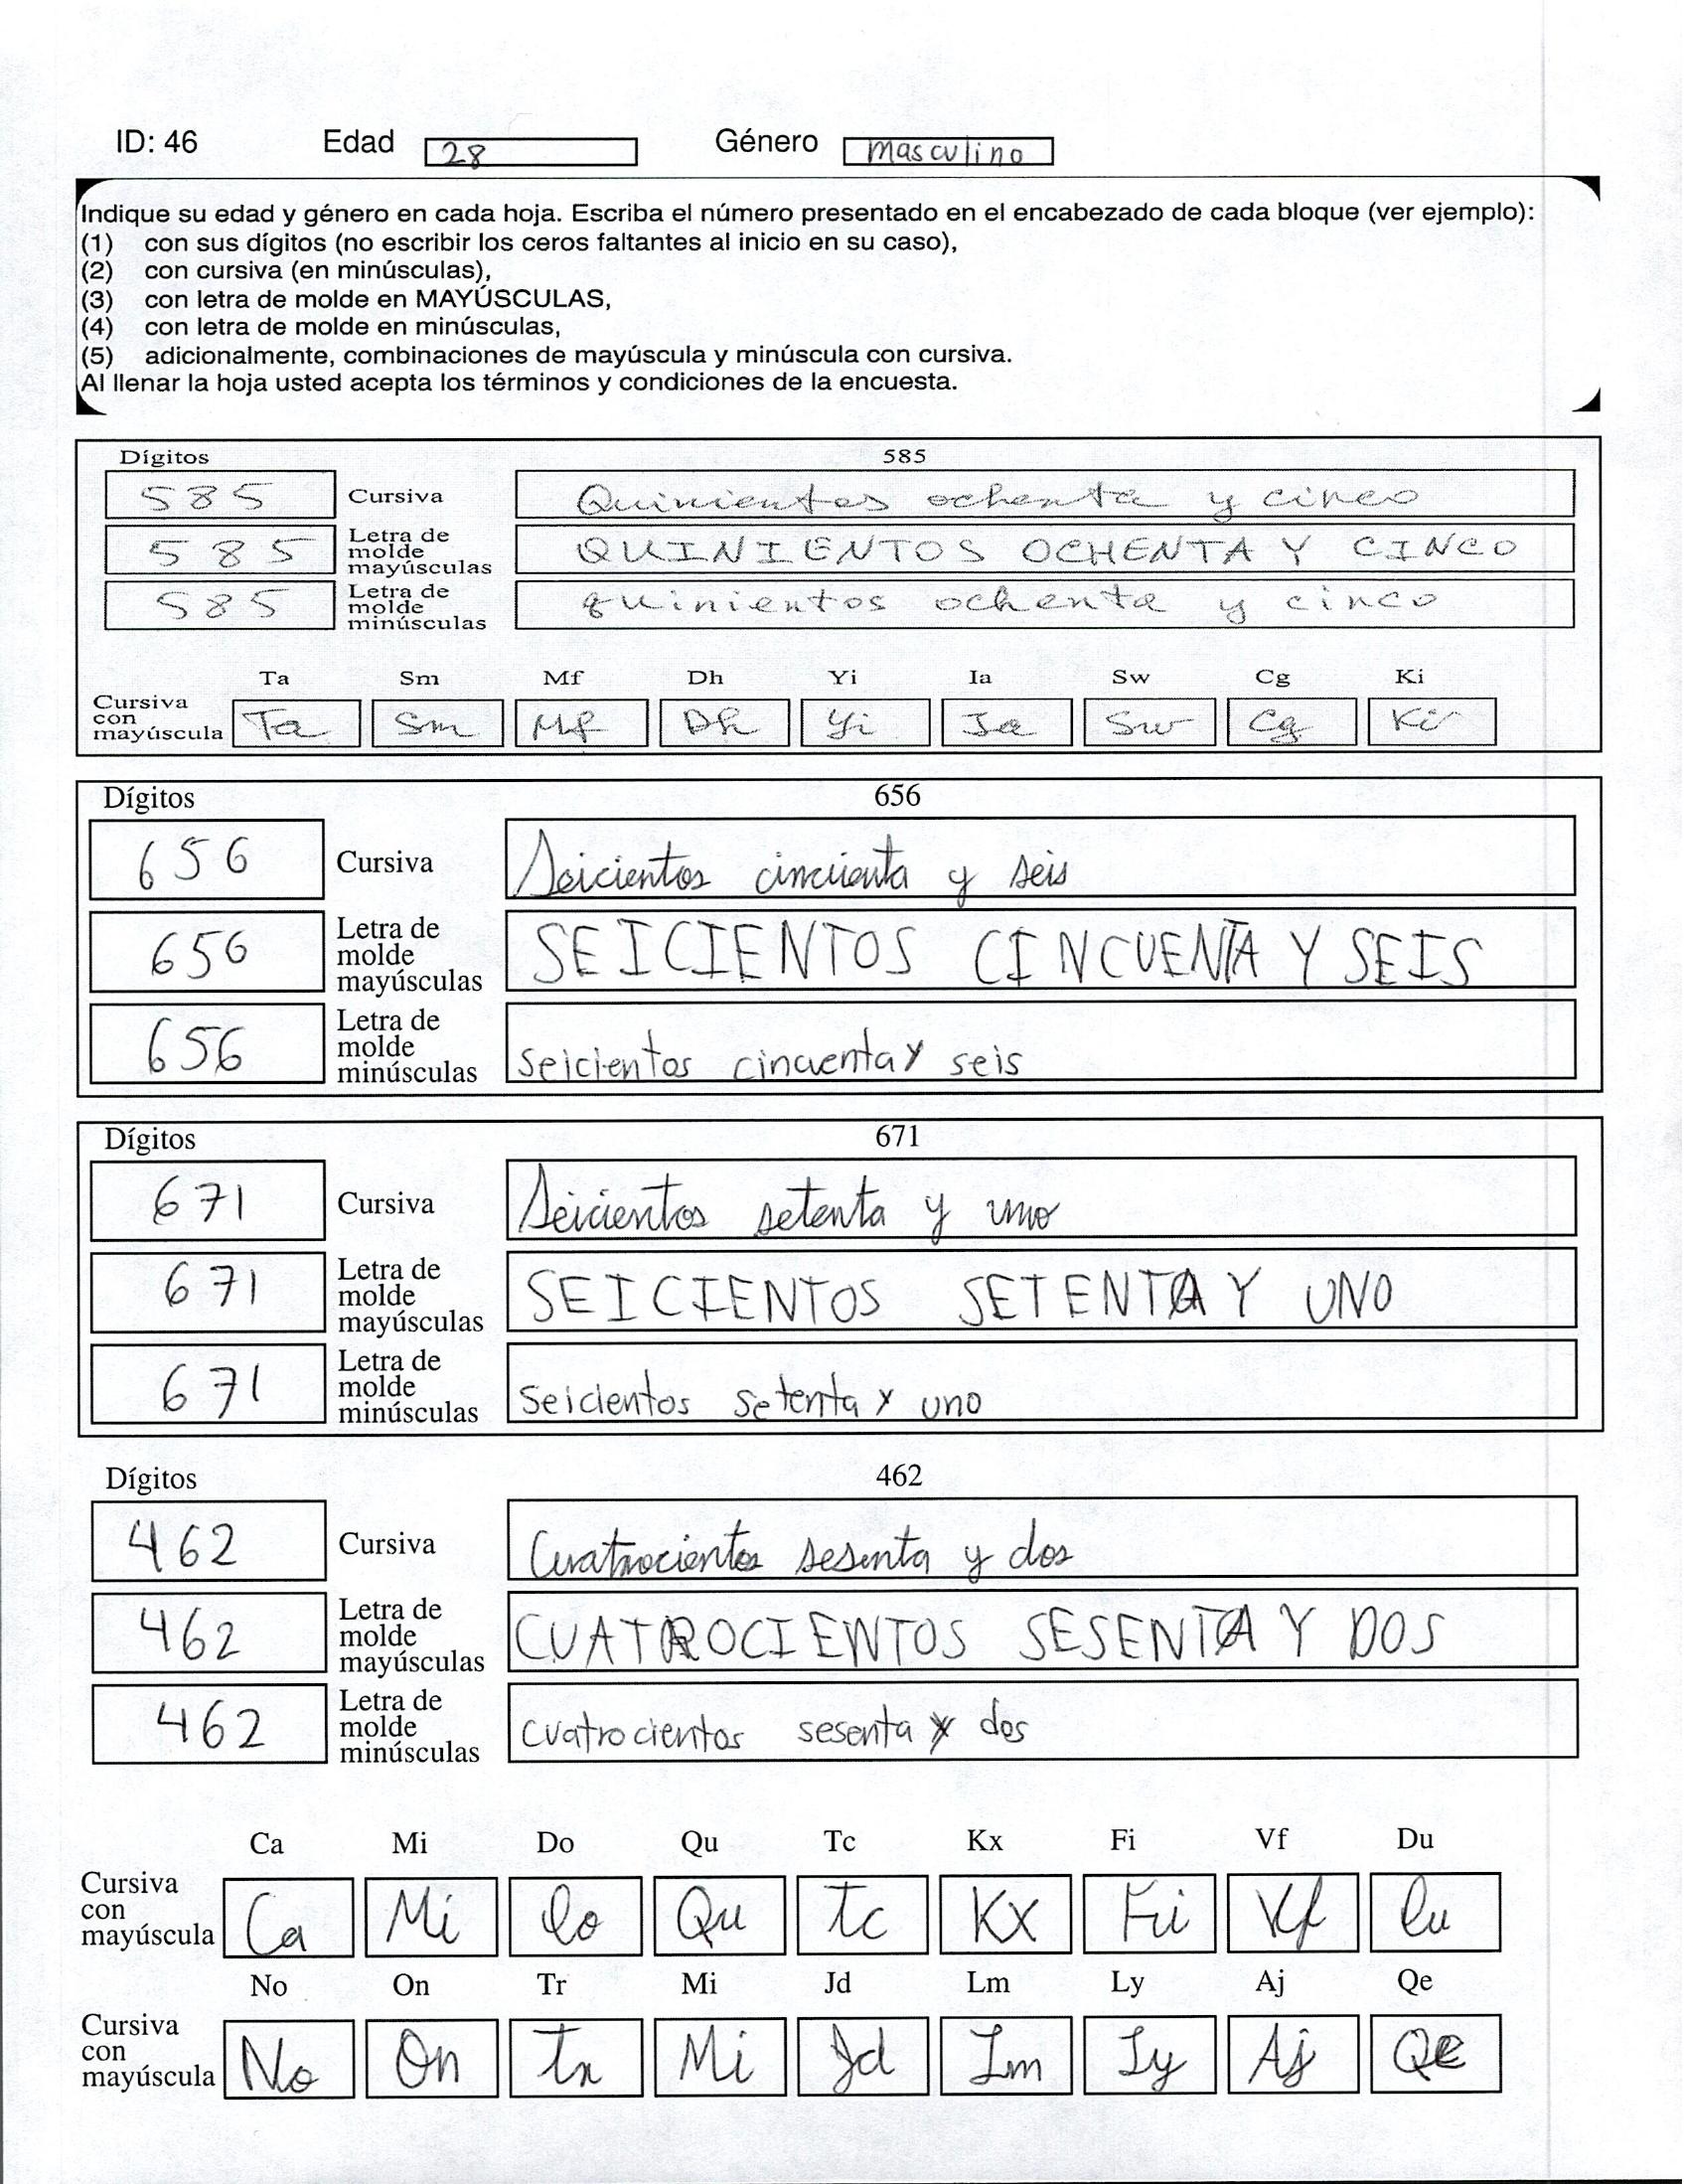 ID: 46 Edad 28 Género Masculino
Indique su edad y género en cada hoja. Escriba el número presentado en el encabezado de cada bloque (ver ejemplo):
(1) con sus dígitos (no escribir los ceros faltantes al inicio en su caso),
(2) con cursiva (en minúsculas),
(3) con letra de molde en MAYÚSCULAS,
(4) con letra de molde en minúsculas,
(5) adicionalmente, combinaciones de mayúscula y minúscula con cursiva.
Al llenar la hoja usted acepta los términos y condiciones de la encuesta.
Dígitos 585
585 Cursiva Quinientos ochenta y cinco
585 Letra de molde mayúsculas QUINIENTOS OCHENTA Y CINCO
585 Letra de molde minúsculas quinientos ochenta y cinco
Ta Sm Mf Dh Yi Ia Sw Cg Ki
Cursiva con mayúscula Ta Sm Mf Dh Yi Ia Sw Cg Ki
Dígitos 656
656 Cursiva Seicientos cincuenta y seis
656 Letra de molde mayúsculas SEICIENTOS CINCUENTA Y SEIS
656 Letra de molde minúsculas seicientos cincuenta y seis
Dígitos 671
671 Cursiva Seicientos setenta y uno
671 Letra de molde mayúsculas SEICIENTOS SETENTA Y UNO
671 Letra de molde minúsculas seicientos setenta y uno
Dígitos 462
462 Cursiva Cuatrocientos sesenta y dos
462 Letra de molde mayúsculas CUATROCIENTOS SESENTA Y DOS
462 Letra de molde minúsculas cuatrocientos sesenta y dos
Ca Mi Do Qu Tc Kx Fi Vf Du
Cursiva con mayúscula Ca Mi Do Qu Tc Kx Fi Vf Du
No On Tr Mi Jd Lm Ly Aj Qe
Cursiva con mayúscula No On Tr Mi Jd Lm Ly Aj Qe